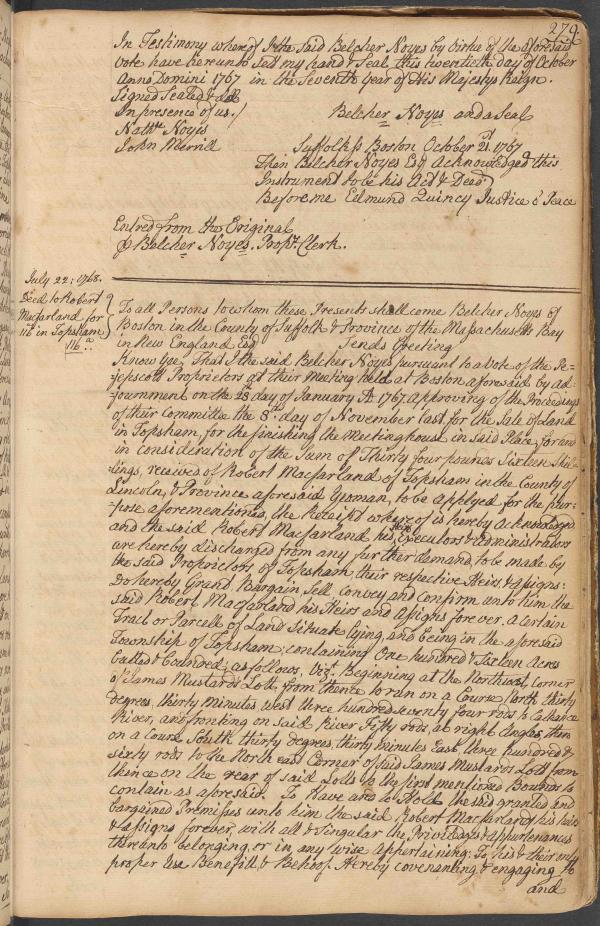 279.
In Testimony whereof I the said Belcher Noyes by virtue of the aforesaid
vote have hereunto Set my hand & Seal this twentieth day of October
Anno Domini 1767 in the Seventh year of His Majestys Reign.
Signed Sealed & dd
In presence of us./ Belcher Noyes and a Seal
Nathll Noyes
John Merrill Suffolk ss Boston October 21st 1767
Then Belcher Noyes Esq Acknowledged this
Instrument to be his Act & Deed
Before me Edmund Quincy Justice o' Peace
Entred from the Original
p Belcher Noyes. Propr. Clerk.
July 22: 1768.
Deed to Robert
Macfarland for
116 in Topsham
116 a
To all Persons to whom these Presents shall come Belcher Noyes of
Boston in the County of Suffolk & Province of the Massachusetts Bay
in New England Esq Sends Greeting
Know Yee, That I the said Belcher Noyes pursuant to a vote of the Pe-
jepscott Proprietors at their Meeting held at Boston aforesaid by ad-
journment on the 28 day of January AD 1767. approving of the Proceedings
of their Committee the 8th day of November last for the Sale of Land
in Topsham, for the finishing the Meetinghouse in said Place, for and
in consideration of the Sum of Thirty four pounds Sixteen Shil-
lings, received of Robert Macfarland of Topsham in the County of
Lincoln, & Province aforesaid Yeoman, to be applyed for the pur-
pose aforementioned, the Receipt whereof is hereby acknowledged
and the said Robert Macfarland his Heirs Executors & Administrators
are hereby discharged from any further demand, to be made by
the said Proprietors of Topsham, their respective Heirs & Assigns:
do hereby Grant Bargain Sell Convey and Confirm unto him the
said Robert Macfarland his Heirs and Assigns forever, a Certain
Tract or Parcell of Land Situate lying and being in the aforesaid
Township of Topsham, containing One hundred & Sixteen Acres
butted & bounded, as follows, Vizt. Beginning at the Northwest corner
of James Mustards Lott, from thence to run on a Course North thirty
degrees, thirty minutes west three hundred seventy four rods to Cathance
River, and fronting on said River Fifty rods, at right Angles, then
on a Course South thirty degrees, thirty minutes East three hundred &
sixty rods to the North east Corner of said James Mustards Lott from
thence on the rear of said Lotts to the first mentioned Bounds to
contain as aforesaid. To Have and to Hold the said granted and
bargained Premises unto him the said Robert Macfarland his heirs
& assigns forever, with all & Singular the Priviledges & appurtenances
thereunto belonging, or in any wise Appertaining: To his & their only
proper Use Benefitt, & Behoof. Hereby covenanting & engaging to
and